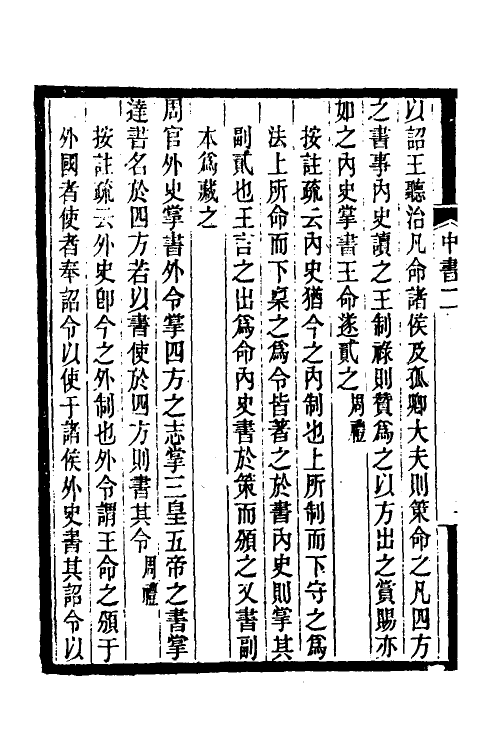 中書二
以詔王聽治凡命諸侯及孤卿大夫則策命之凡四方
之書事內史讀之王制祿則贊爲之以方出之賞賜亦
如之內史掌書王命遂貳之周禮
按註疏云內史猶今之內制也上所制而下守之爲
法上所命而下稟之爲令皆著之於書內史則掌其
副貳也王言之出爲命內史書於策而頒之又書副
本爲藏之
周官外史掌書外令掌四方之志掌三皇五帝之書掌
達書名於四方若以書使於四方則書其令周禮
按註疏云外史卽今之外制也外令謂王命之頒于
外國者使者奉詔令以使于諸侯外史書其詔令以